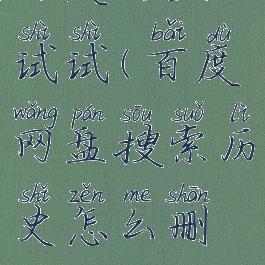 shì shì bǎi dù
试试(百度
wǎng pán sōu suǒ lì
网盘搜索历
shǐ zěn me shān
史怎么删